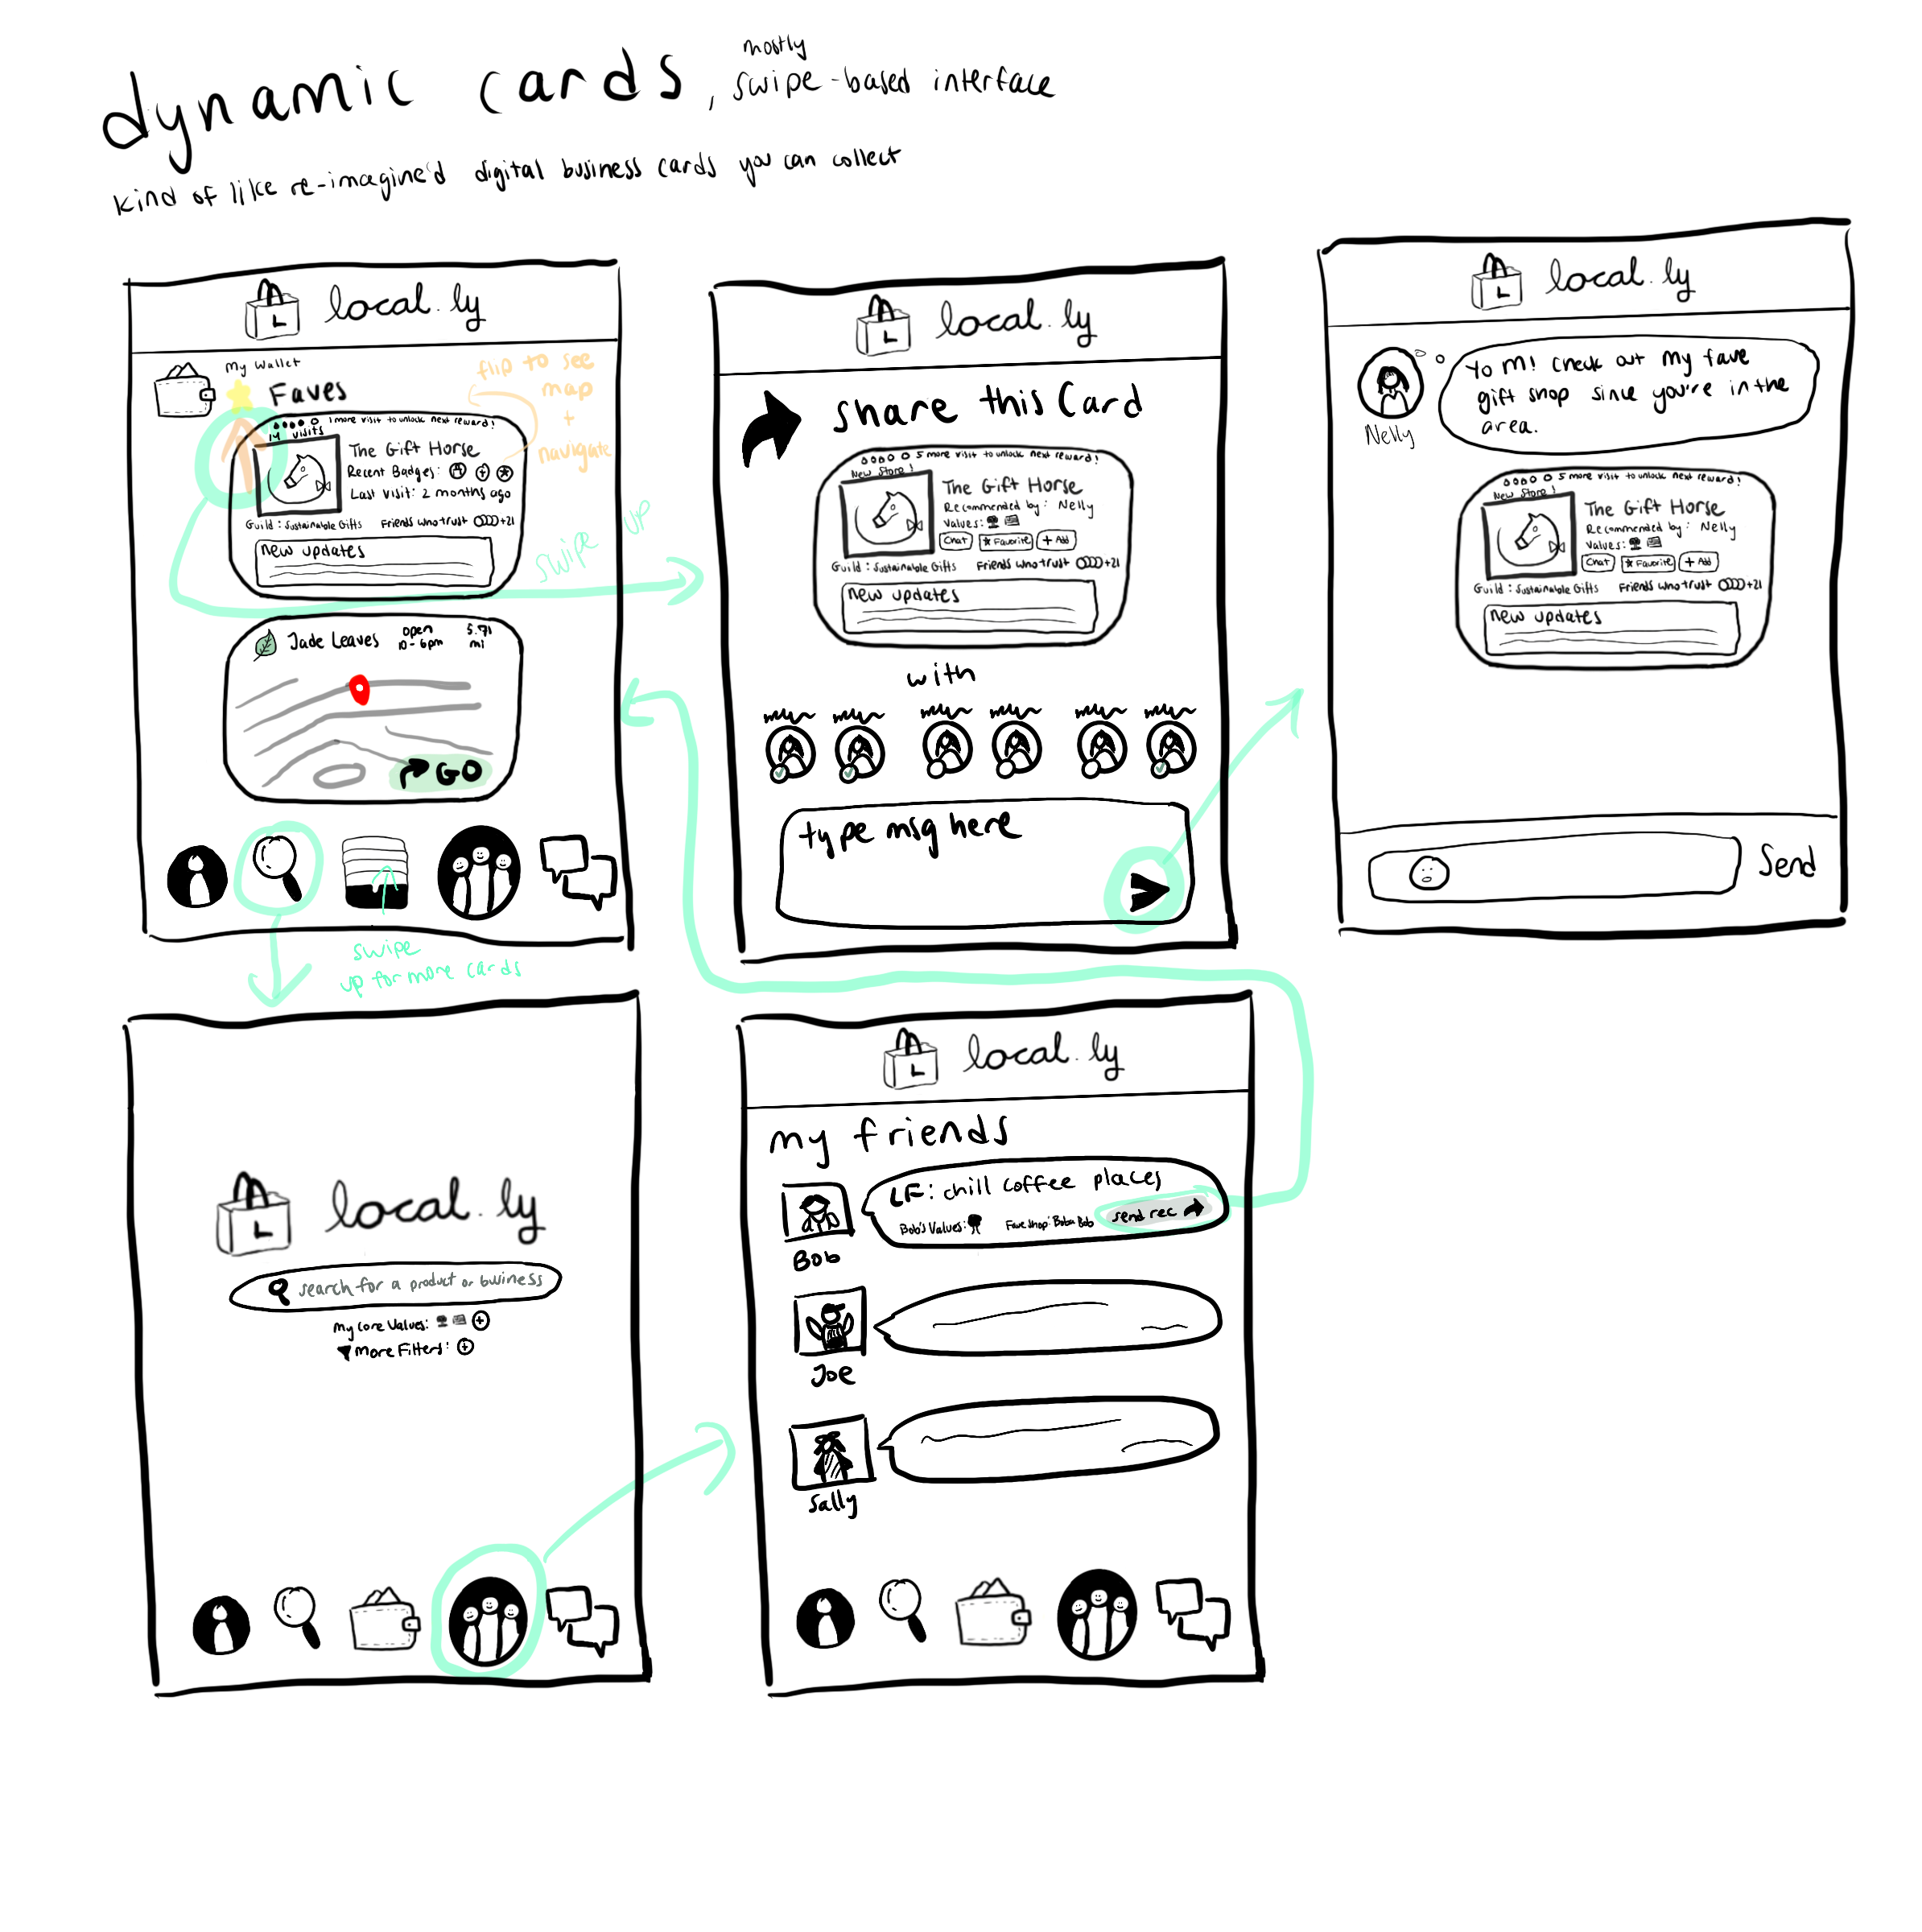 dynamic cards, mostly swipe-based interface
kind of like re-imagine'd digital business cards you can collect
local.ly
My Wallet
Faves
flip to see
map
+
navigate
1 more visit to unlock next reward!
14 visits
The Gift Horse
Recent Badges:
Last visit: 2 months ago
Guild: Sustainable Gifts Friends who trust +21
new updates
Jade Leaves open 10-6pm 5.71 mi
GO
swipe up
swipe
up for more cards
local.ly
share this Card
5 more visit to unlock next reward!
New Store!
The Gift Horse
Recommended by: Nelly
Values:
Chat ★ Favorite + Add
Guild: Sustainable Gifts Friends who trust +21
new updates
with
type msg here
local.ly
Yo M! Check out my fave
gift shop since you're in the
area.
Nelly
5 more visit to unlock next reward!
New Store!
The Gift Horse
Recommended by: Nelly
Values:
Chat ★ Favorite + Add
Guild: Sustainable Gifts Friends who trust +21
new updates
Send
local.ly
search for a product or business
My Core Values: +
More Filters: +
local.ly
my friends
LF: chill coffee places
Bob's Values: Fave Shop: Boba Bob send rec
Bob
Joe
Sally